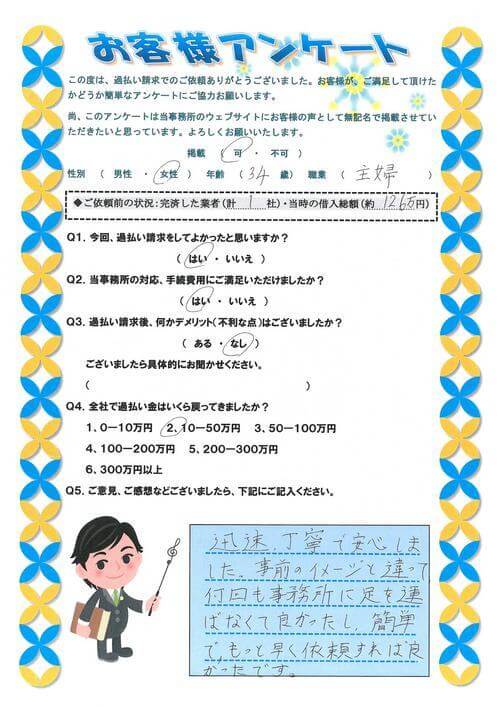 お客様アンケート
この度は、過払い請求でのご依頼ありがとうございました。お客様が、ご満足して頂けた
かどうか簡単なアンケートにご協力お願いします。
尚、このアンケートは当事務所のウェブサイトにお客様の声として無記名で掲載させてい
ただきたいと思っています。よろしくお願いいたします。
掲載 ( 可 ・ 不可 )
性別 ( 男性 ・ 女性 ) 年齢 ( 34 歳 ) 職業 ( 主婦 )
◆ご依頼前の状況:完済した業者(計 1 社)・当時の借入総額(約 126万円)
Q1. 今回、過払い請求をしてよかったと思いますか?
( はい ・ いいえ )
Q2. 当事務所の対応、手続費用にご満足いただけましたか?
( はい ・ いいえ )
Q3. 過払い請求後、何かデメリット(不利な点)はございましたか?
( ある ・ なし )
ございましたら具体的にお聞かせください。
( )
Q4. 全社で過払い金はいくら戻ってきましたか?
1、0ー10万円 2、10ー50万円 3、50ー100万円
4、100ー200万円 5、200ー300万円
6、300万円以上
Q5. ご意見、ご感想などございましたら、下記にご記入ください。
迅速、丁寧で安心しま
した。事前のイメージと違って
何回も事務所に足を運
ばなくて良かったし、簡単
で、もっと早く依頼すれば良
かったです。